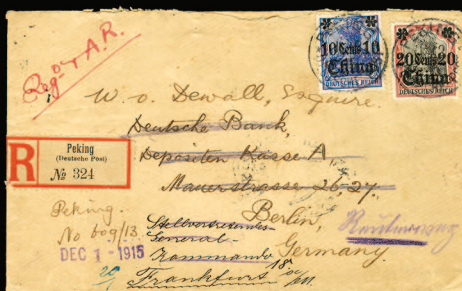 Reg'd & A.R.
10 Cents 10
China
DEUTSCHES REICH
20 Cents 20
China
DEUTSCHES REICH
W. v. Dewall, Esquire.
Deutsche Bank,
Depositen Kasse A
Mauerstrasse 26, 27.
Berlin,
Germany.
R
Peking
(Deutsche Post)
№ 324
Peking.
No 609/13.
DEC 1 - 1915
Stellvertretender
General-
Kommando 18.
Frankfurt